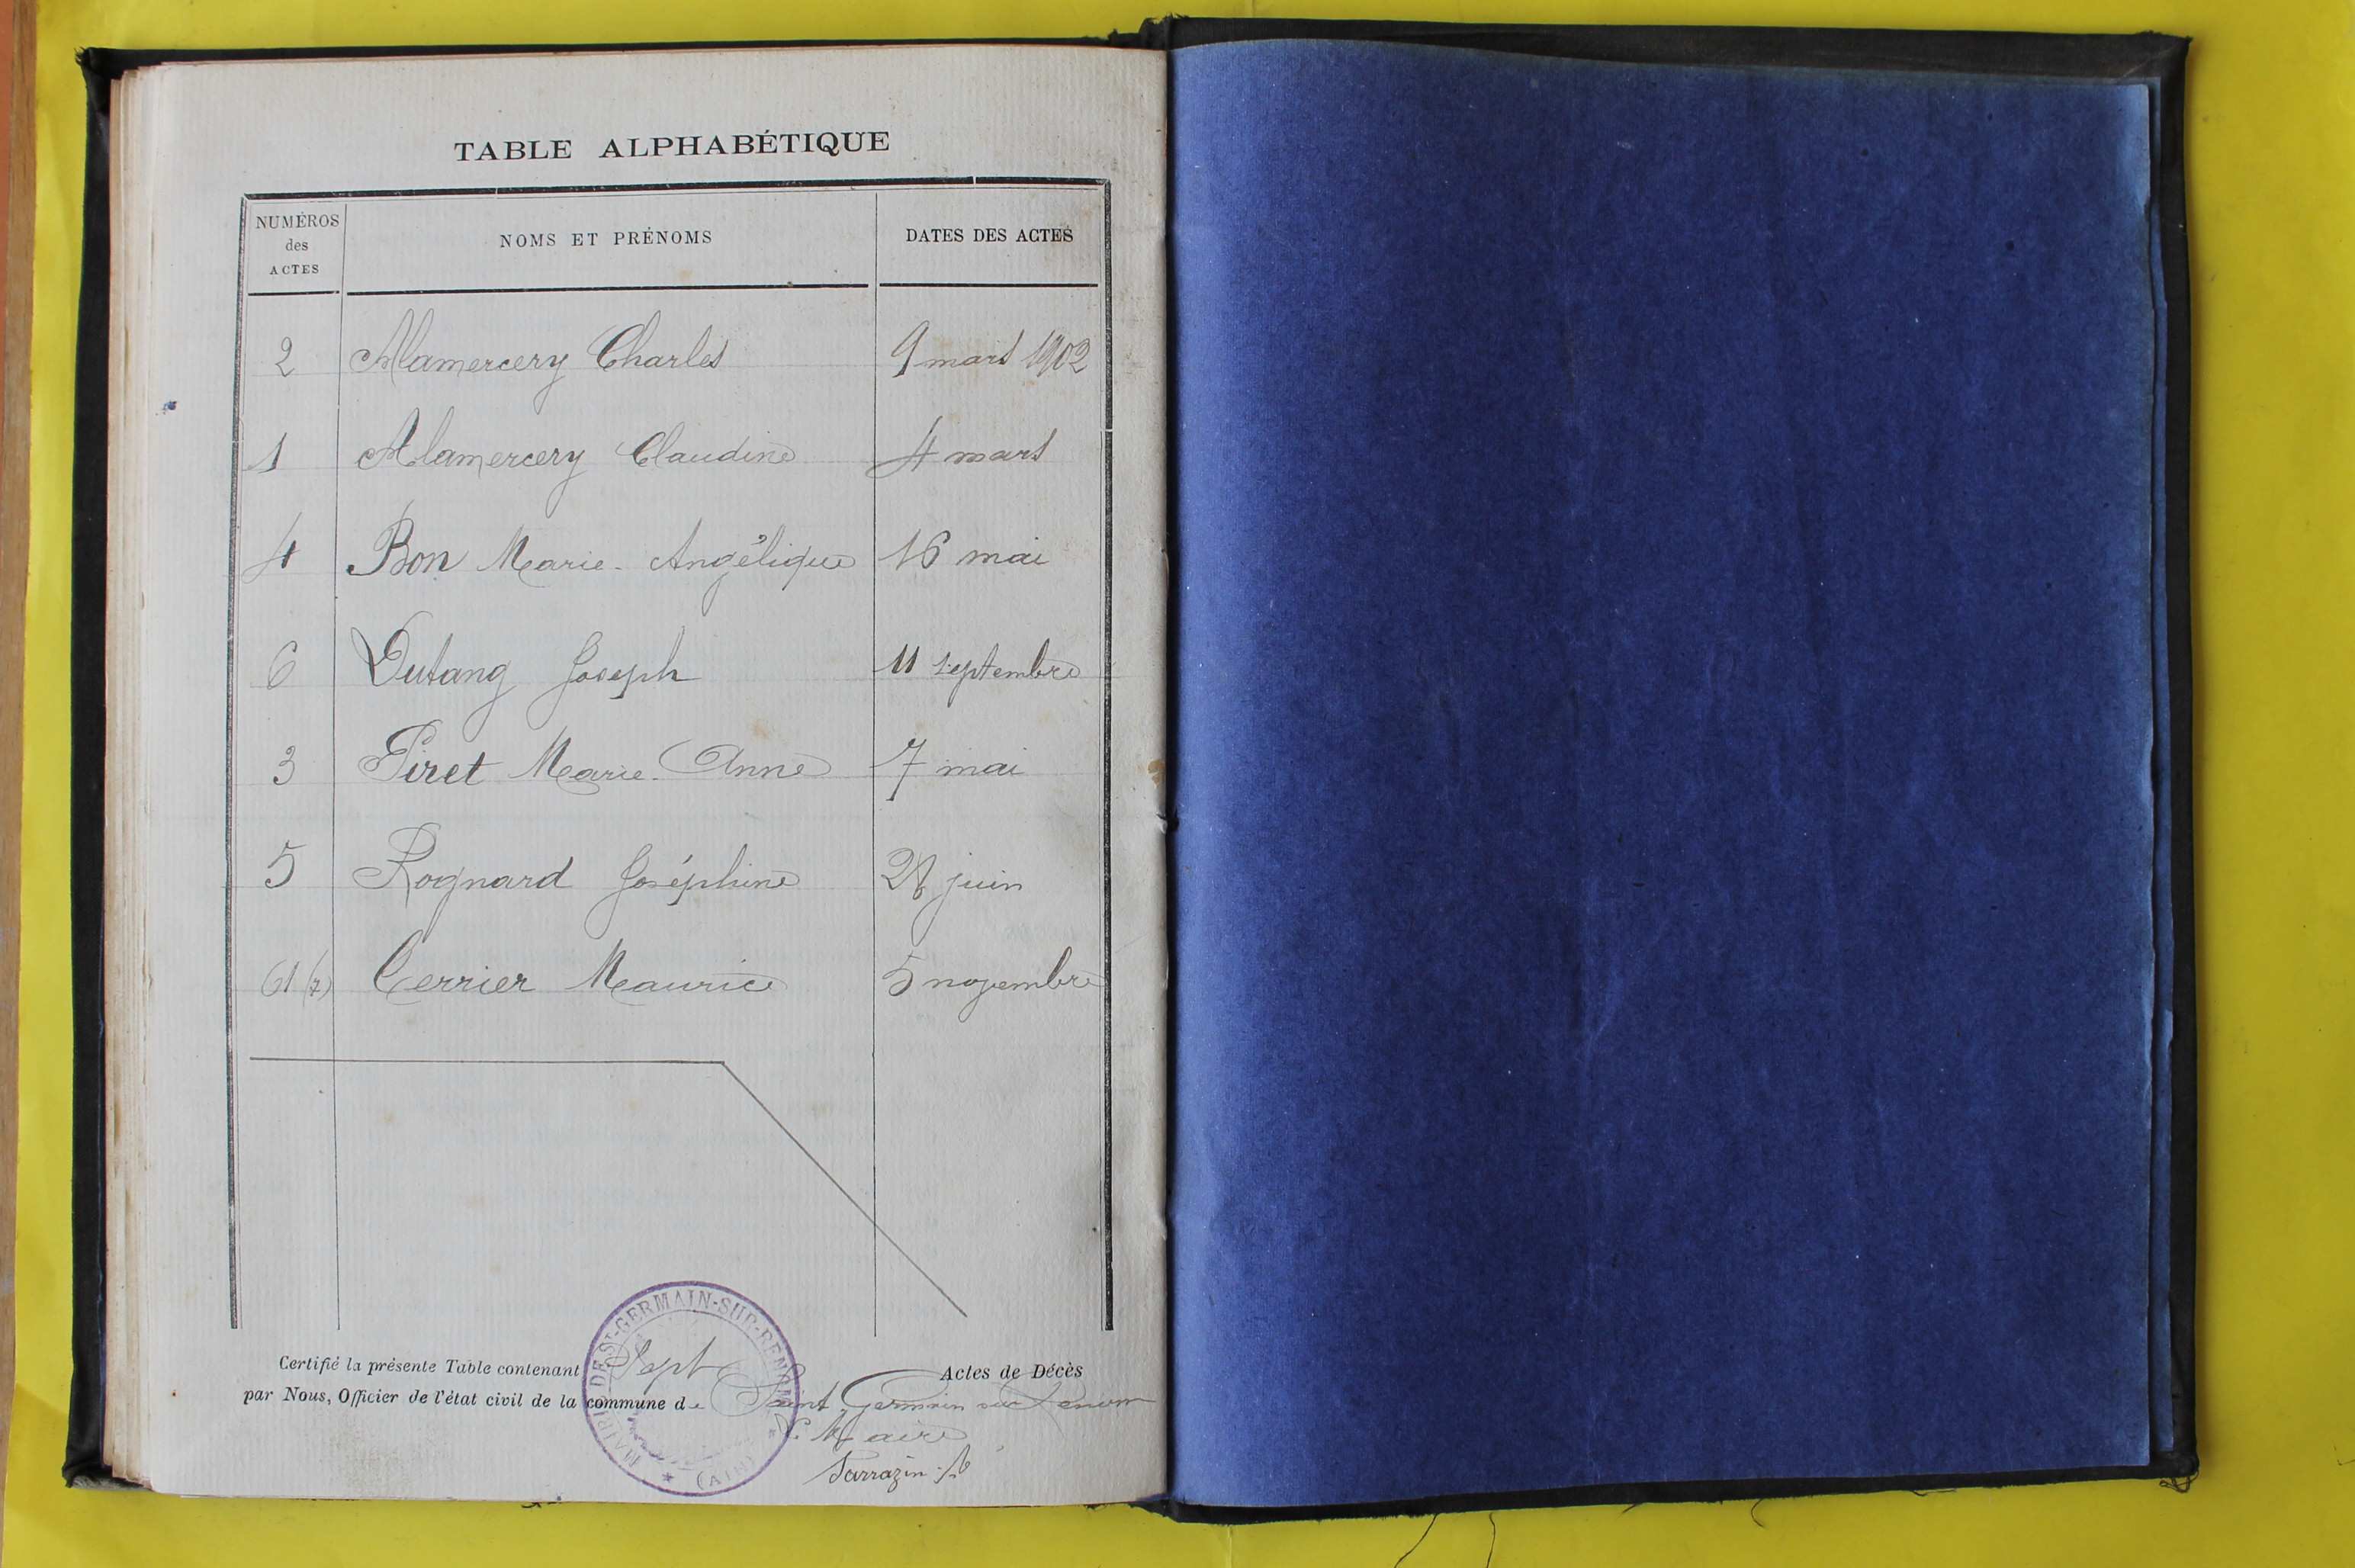 TABLE ALPHABÉTIQUE
NUMÉROS des ACTES
NOMS ET PRÉNOMS
DATES DES ACTES
2 Alamercery Charles 9 mars 1902
1 Alamercery Claudine 4 mars
4 Bon Marie-Angélique 16 mai
6 Dutang Joseph 11 septembre
3 Piret Marie-Anne 7 mai
5 Rognard Joséphine juin
(7) Cerrier Maurice 5 novembre
Certifié la présente Table contenant Sept Actes de Décès
par Nous, Officier de l'état civil de la commune de Saint Germain sur Renom
Maire
Sarrazin
MAIRIE DE ST-GERMAIN-SUR-RENOM
(AIN)